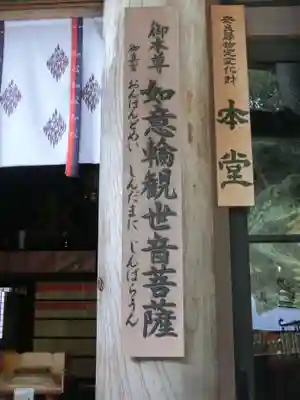 奈良県指定文化財
本堂
御本尊
如意輪観世音菩薩
御真言
おんばらだはんどめい しんだまに じんばらうん